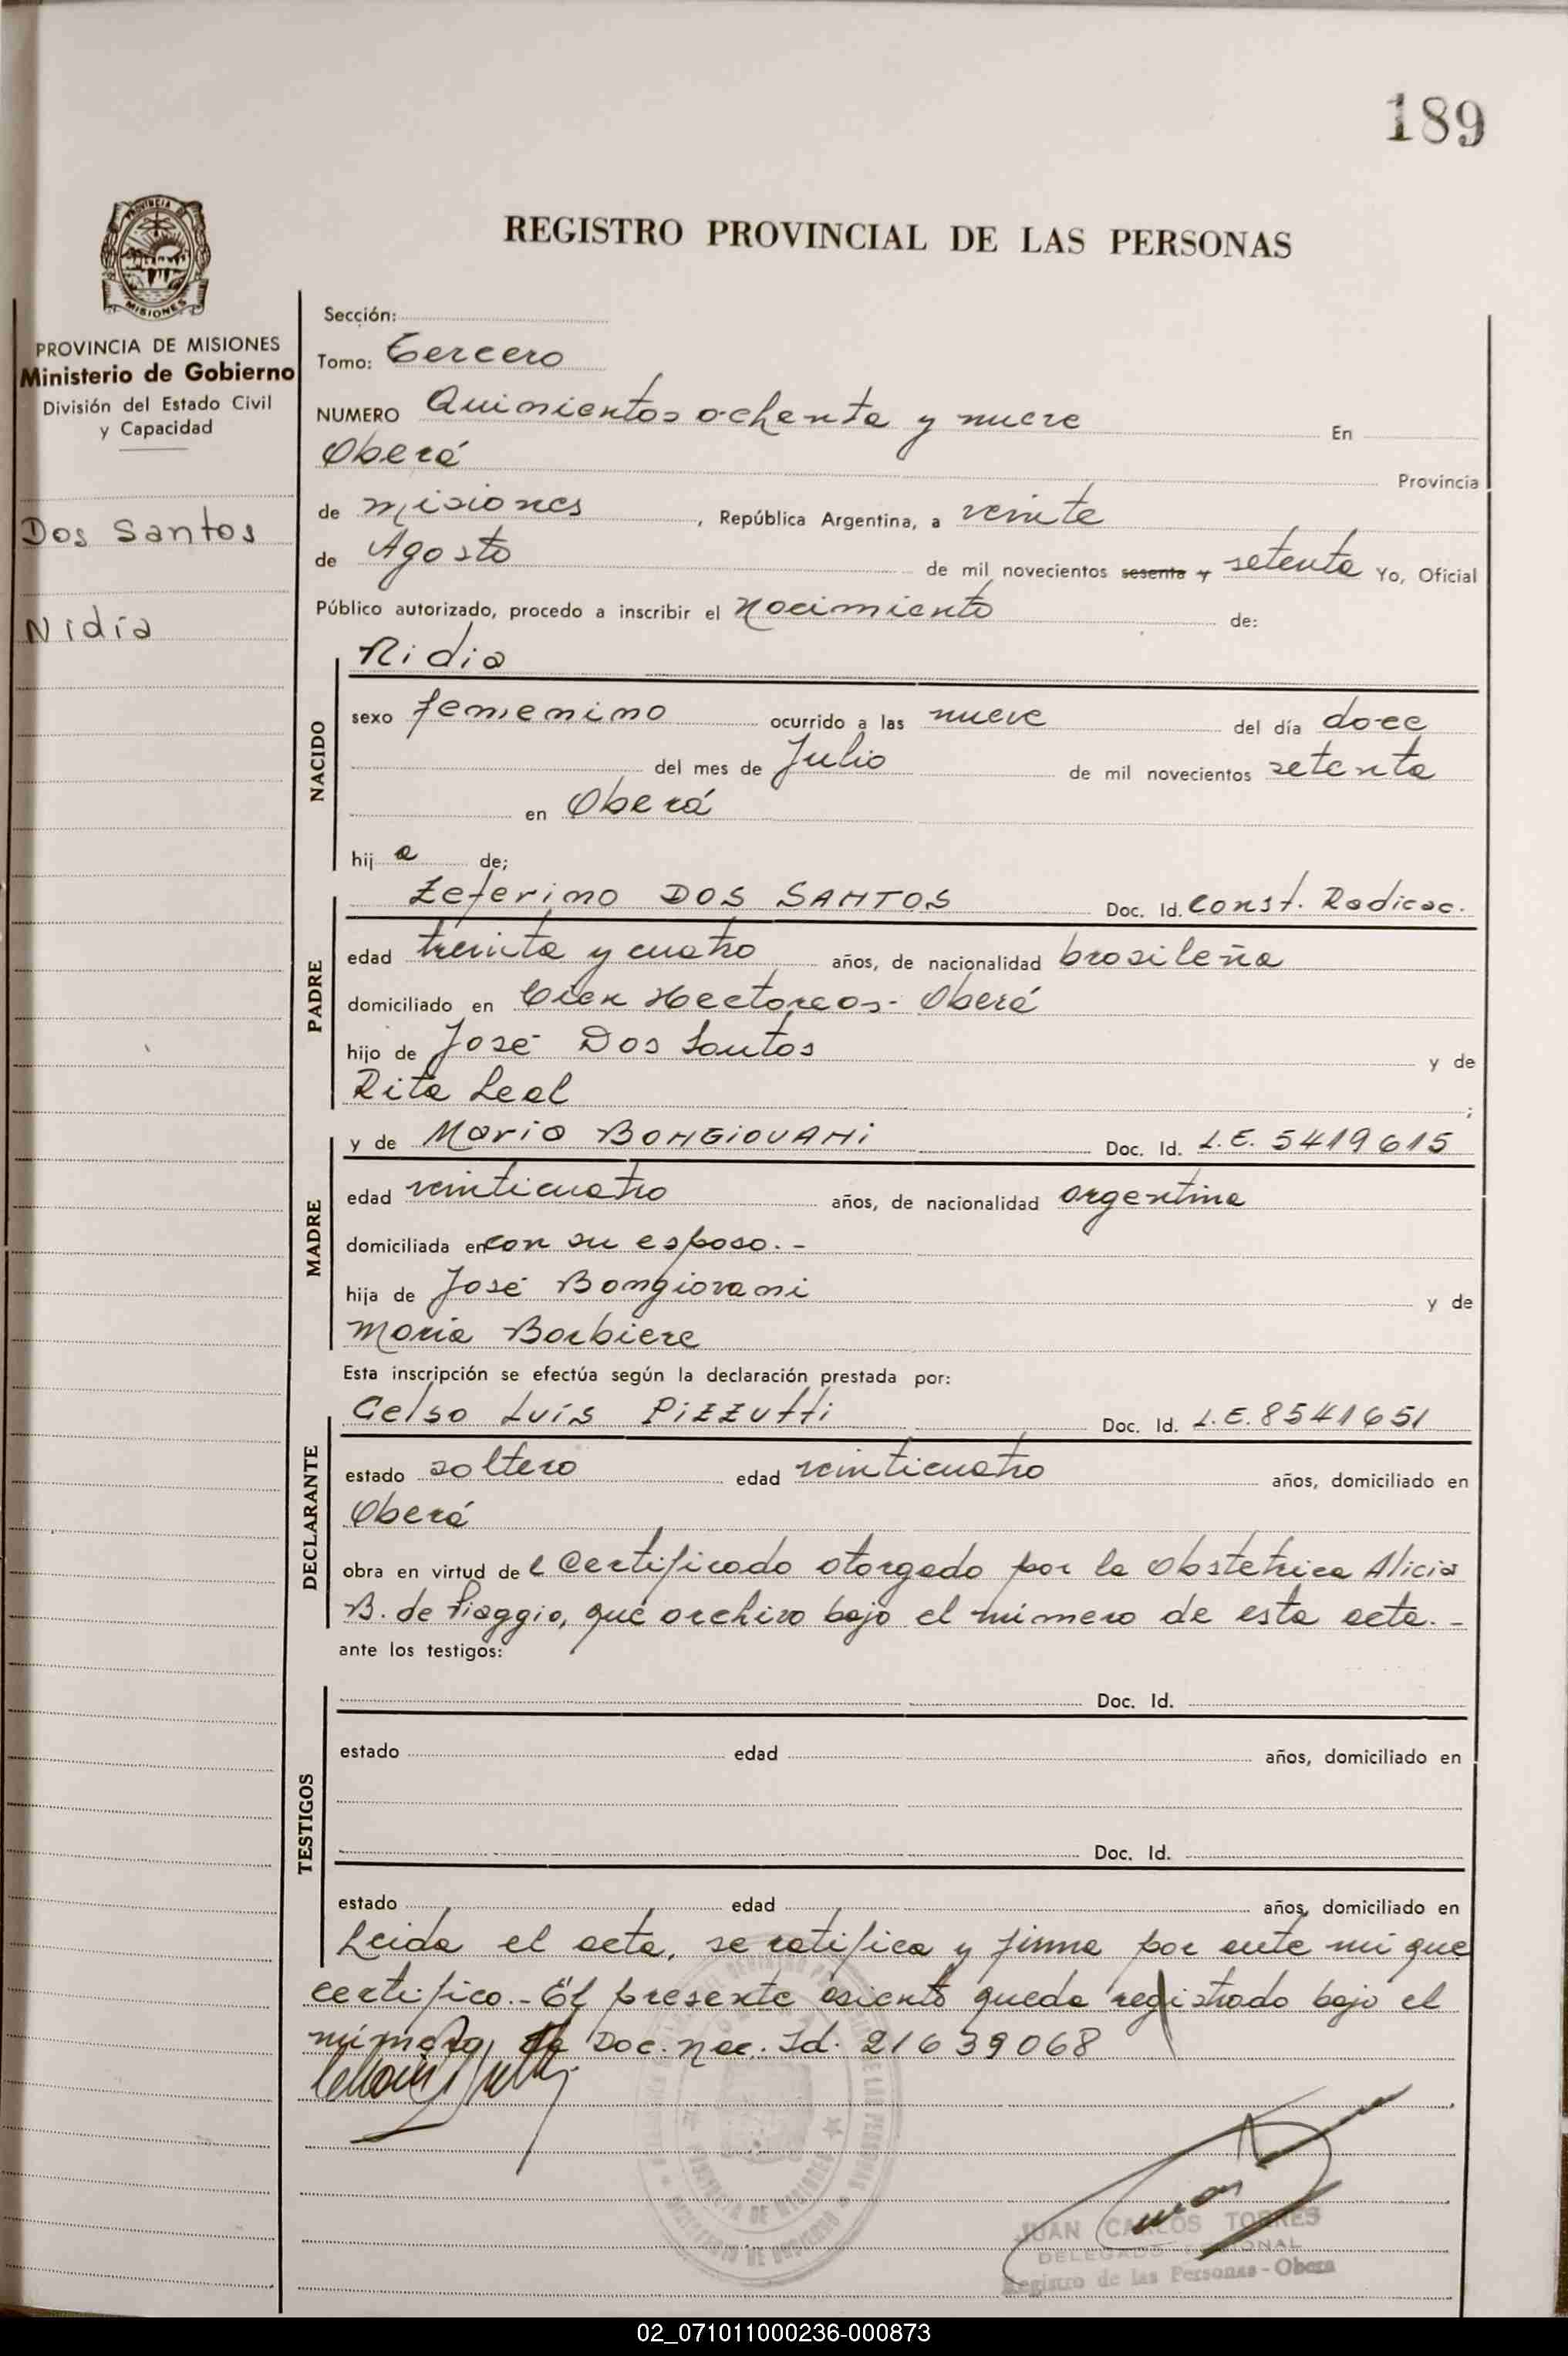 189
REGISTRO PROVINCIAL DE LAS PERSONAS
PROVINCIA DE
MISIONES
PROVINCIA DE MISIONES
Ministerio de Gobierno
División del Estado Civil
y Capacidad
Dos Santos
Nidia
Sección:
Tomo: Tercero
NUMERO Quinientos ochenta y nueve En
Oberá Provincia
de Misiones, República Argentina, a veinte
de Agosto de mil novecientos sesenta y setenta Yo, Oficial
Público autorizado, procedo a inscribir el Nacimiento de:
NACIDO
Nidia
sexo femenino ocurrido a las nueve del día doce
del mes de Julio de mil novecientos setenta
en Oberá
hij a de;
PADRE
Zeferino DOS SANTOS Doc. Id. Const. Radicac.
edad treinta y cuatro años, de nacionalidad brasileña
domiciliado en Cien Hectareas- Oberá
hijo de José Dos Santos y de
Rita Leal ;
MADRE
y de Maria BONGIOVANI Doc. Id. L.E. 5419615
edad veinticuatro años, de nacionalidad argentina
domiciliada en con su esposo.-
hija de José Bongiovani y de
Maria Barbiere
Esta inscripción se efectúa según la declaración prestada por:
DECLARANTE
Celso Luis PiZZutti Doc. Id. L.E. 8541651
estado soltero edad veinticuatro años, domiciliado en
Oberá
obra en virtud de l Certificado otorgado por la Obstetrica Alicia
B. de Piaggio, que archivo bajo el número de esta acta.-
ante los testigos:
TESTIGOS
Doc. Id.
estado edad años, domiciliado en
Doc. Id.
estado edad años, domiciliado en
Leida el acta, se ratifica y firma por ante mi que
certifico.- El presente asiento queda registrado bajo el
número de Doc. Nac. Id. 21639068
JUAN CARLOS TORRES
DELEGADO REGIONAL
Registro de las Personas - Obera
02_071011000236-000873